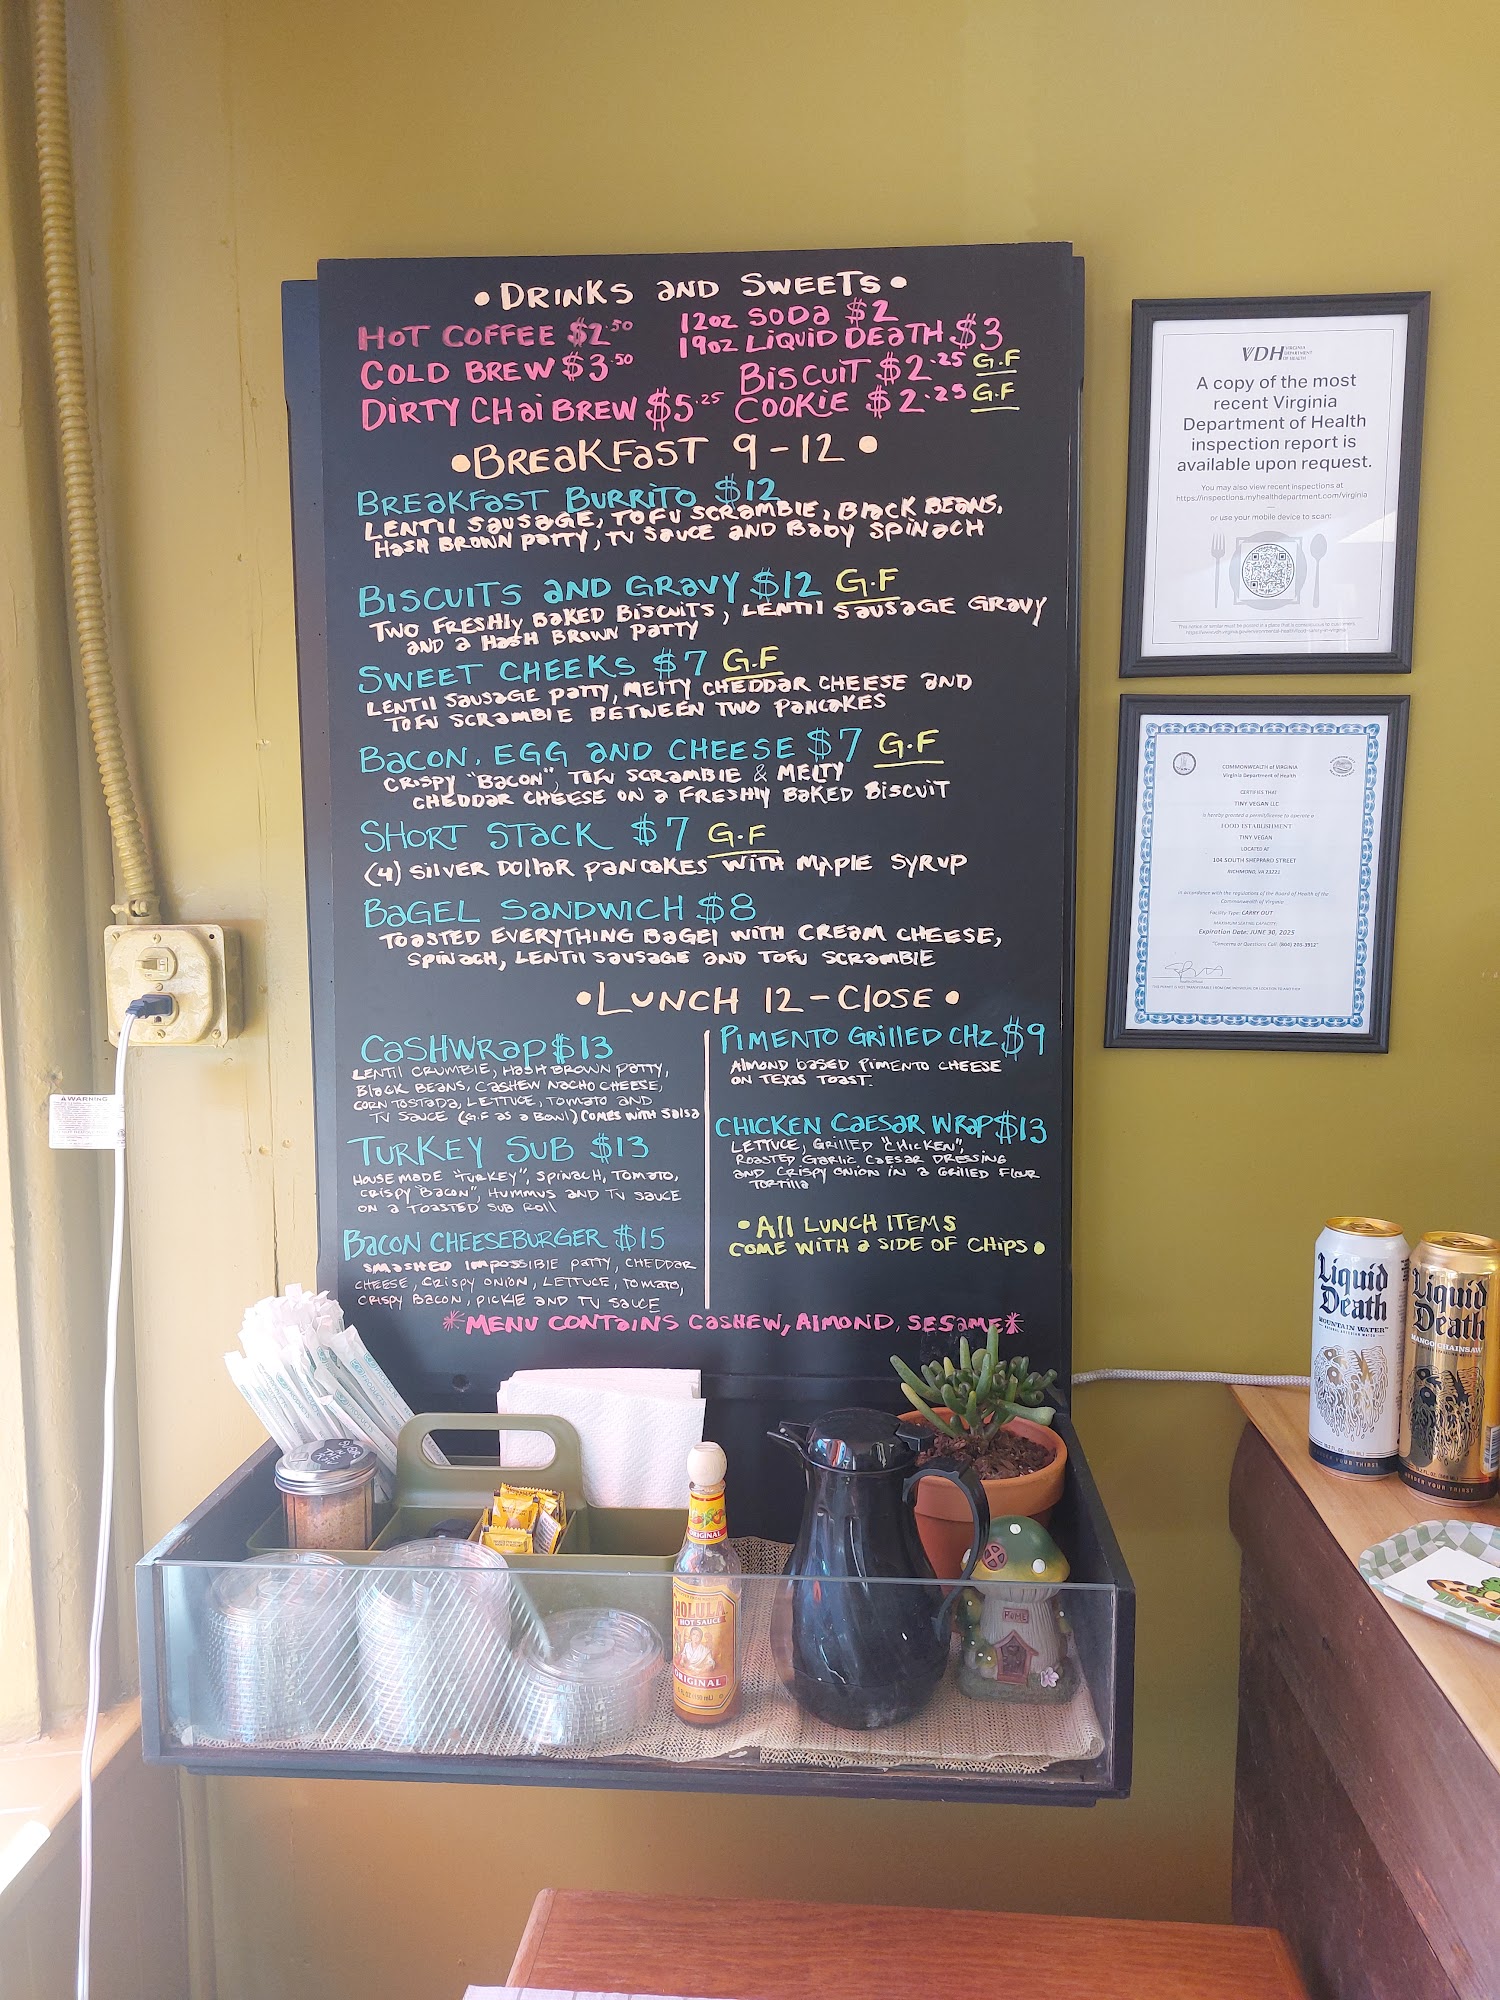 • DRINKS AND SWEETS •
HOT COFFEE $2.50
COLD BREW $3.50
DIRTY CHAI BREW $5.25
12OZ SODA $2
19OZ LIQUID DEATH $3
BISCUIT $2.25 G.F
COOKIE $2.25 G.F
• BREAKFAST 9-12 •
BREAKFAST BURRITO $12
LENTIL SAUSAGE, TOFU SCRAMBLE, BLACK BEANS,
HASH BROWN PATTY, TV SAUCE AND BABY SPINACH
BISCUITS AND GRAVY $12 G.F
TWO FRESHLY BAKED BISCUITS, LENTIL SAUSAGE GRAVY
AND A HASH BROWN PATTY
SWEET CHEEKS $7 G.F
LENTIL SAUSAGE PATTY, MELTY CHEDDAR CHEESE AND
TOFU SCRAMBLE BETWEEN TWO PANCAKES
BACON, EGG AND CHEESE $7 G.F
CRISPY "BACON", TOFU SCRAMBLE & MELTY
CHEDDAR CHEESE ON A FRESHLY BAKED BISCUIT
SHORT STACK $7 G.F
(4) SILVER DOLLAR PANCAKES WITH MAPLE SYRUP
BAGEL SANDWICH $8
TOASTED EVERYTHING BAGEL WITH CREAM CHEESE,
SPINACH, LENTIL SAUSAGE AND TOFU SCRAMBLE
• LUNCH 12 - CLOSE •
CASHWRAP $13
LENTIL CRUMBLE, HASH BROWN PATTY,
BLACK BEANS, CASHEW NACHO CHEESE,
CORN TOSTADA, LETTUCE, TOMATO AND
TV SAUCE (G.F AS A BOWL) COMES WITH SALSA
TURKEY SUB $13
HOUSE MADE "TURKEY", SPINACH, TOMATO,
CRISPY "BACON", HUMMUS AND TV SAUCE
ON A TOASTED SUB ROLL
BACON CHEESEBURGER $15
SMASHED IMPOSSIBLE PATTY, CHEDDAR
CHEESE, CRISPY ONION, LETTUCE, TOMATO,
CRISPY BACON, PICKLE AND TV SAUCE
PIMENTO GRILLED CHZ $9
ALMOND BASED PIMENTO CHEESE
ON TEXAS TOAST.
CHICKEN CAESAR WRAP $13
LETTUCE, GRILLED "CHICKEN",
ROASTED GARLIC CAESAR DRESSING
AND CRISPY ONION IN A GRILLED FLOUR
TORTILLA
• ALL LUNCH ITEMS
COME WITH A SIDE OF CHIPS •
*MENU CONTAINS CASHEW, ALMOND, SESAME*
VDH VIRGINIA DEPARTMENT OF HEALTH
A copy of the most
recent Virginia
Department of Health
inspection report is
available upon request.
You may also view recent inspections at
https://inspections.myhealthdepartment.com/virginia
or use your mobile device to scan:
COMMONWEALTH of VIRGINIA
Virginia Department of Health
CERTIFIES THAT
TINY VEGAN LLC
is hereby granted a permit/license to operate a
FOOD ESTABLISHMENT
TINY VEGAN
LOCATED AT
104 SOUTH SHEPPARD STREET
RICHMOND, VA 23221
in accordance with the regulations of the Board of Health of the
Commonwealth of Virginia
Facility Type: CARRY OUT
Expiration Date: JUNE 30, 2025
WARNING
Liquid
Death
MOUNTAIN WATER
MURDER YOUR THIRST
Liquid
Death
MANGO CHAINSAW
MURDER YOUR THIRST
ORIGINAL
HOLULA
HOT SAUCE
ORIGINAL
HOME